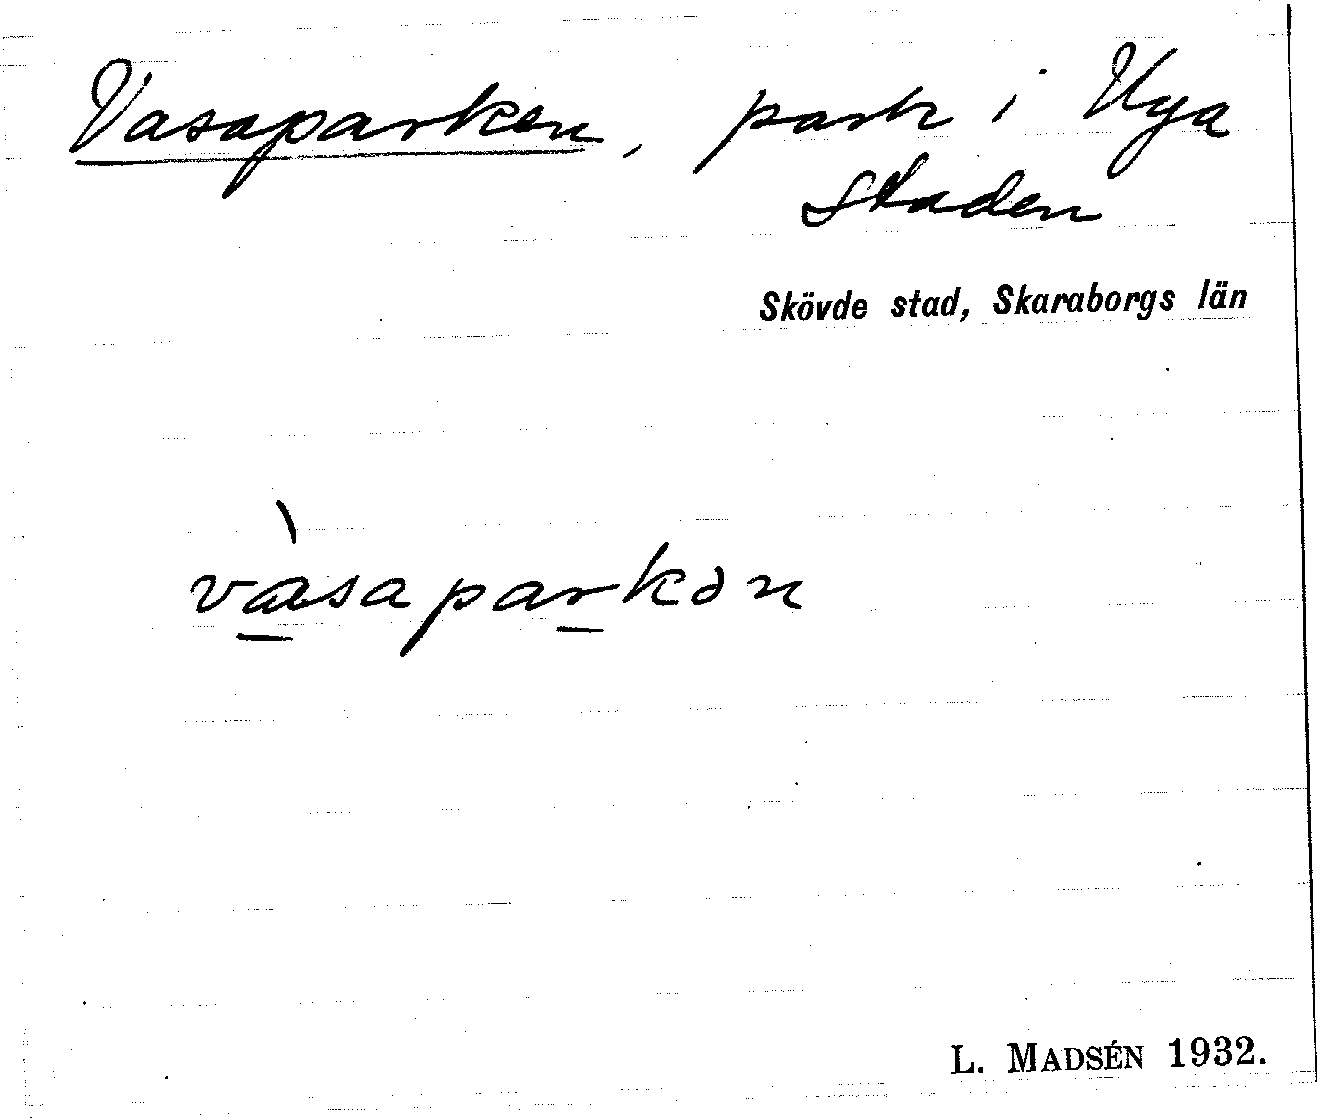 Vasaparken, park i Nya
staden
Skövde stad, Skaraborgs län
vàsaparkən
L. MADSÉN 1932.